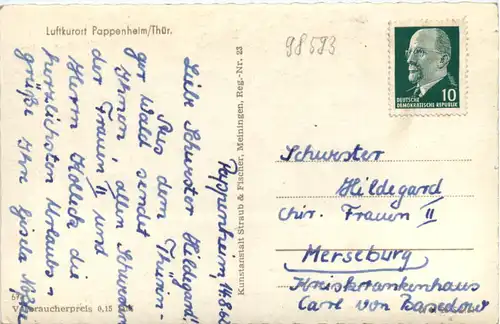 Luftkurort Pappenheim/Thür.
98593
Pappenheim 14.8.62
Liebe Schwester Hildegard!
Aus dem Thürin-
ger Wald sendet
Ihnen, allen Schwestern
der Frauen II und
Herrn Kolleck die
herzlichsten Urlaubs-
grüße Ihre Gisela
Verbraucherpreis 0,15
Kunstanstalt Straub & Fischer, Meiningen, Reg.-Nr. 23
10
DEUTSCHE
DEMOKRATISCHE REPUBLIK
Schwester
Hildegard
Chir. Frauen II
Merseburg
Kreiskrankenhaus
Carl von Basedow